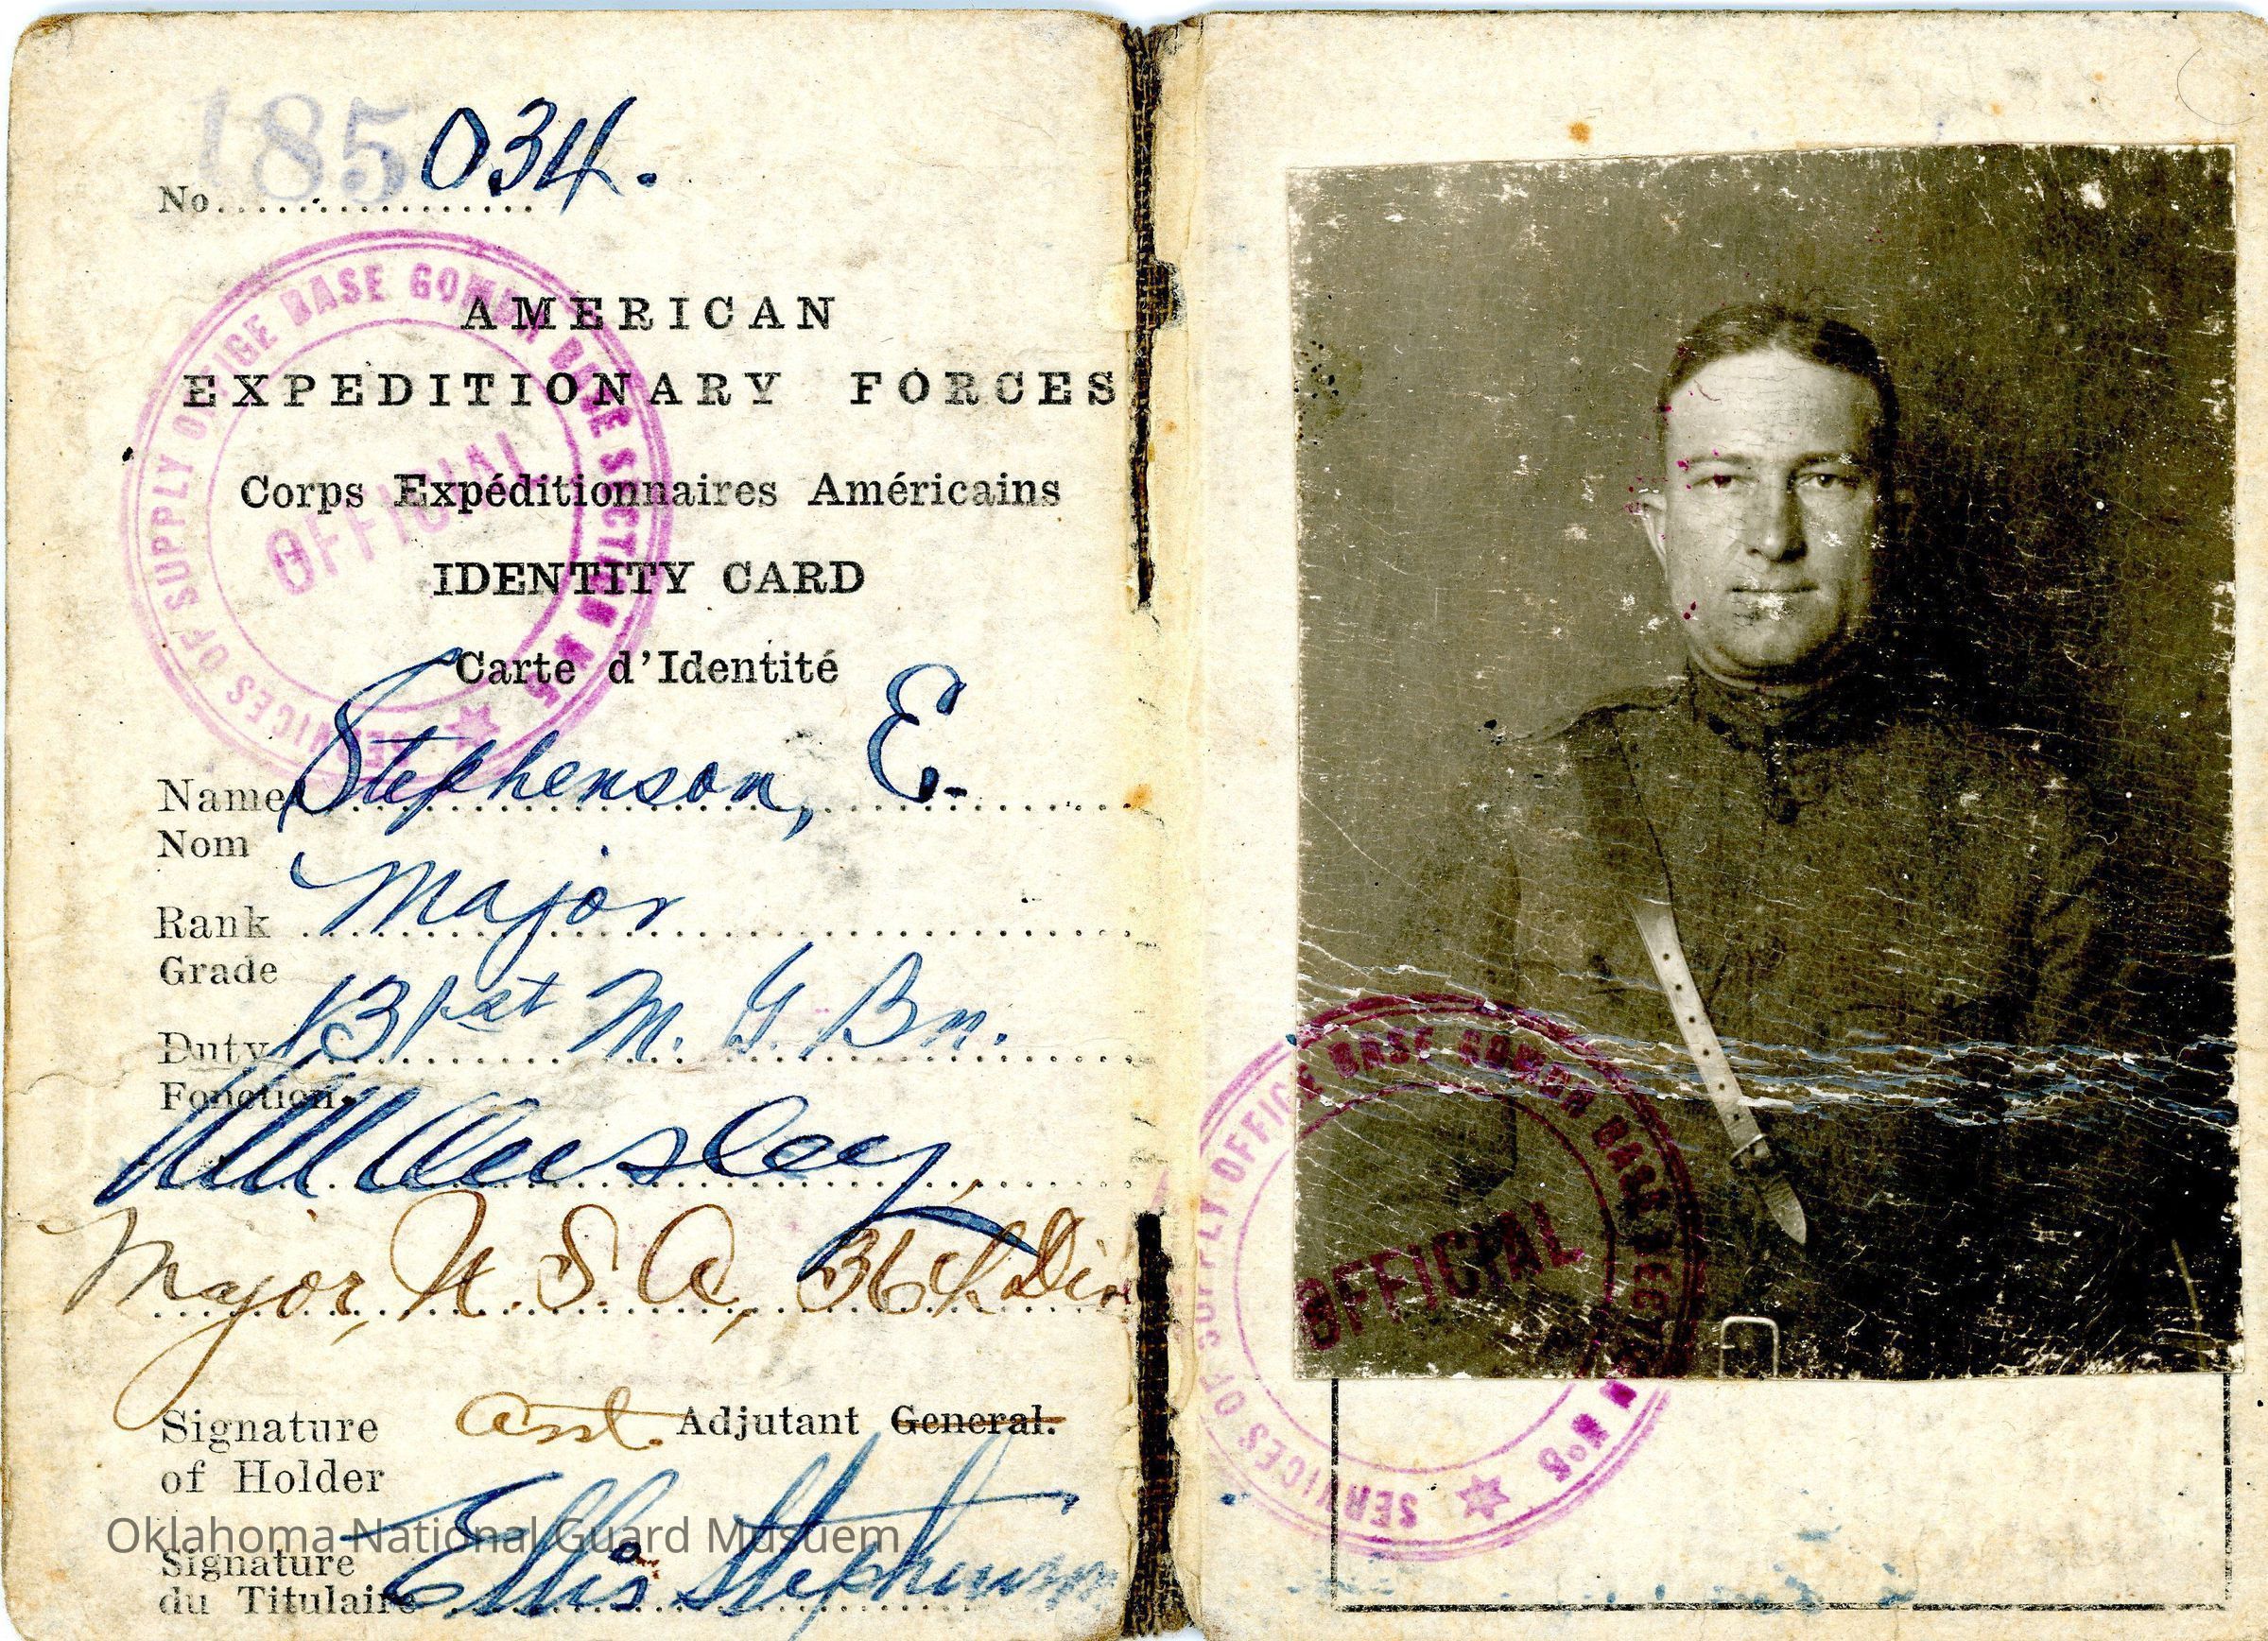 No. 185034.
AMERICAN
EXPEDITIONARY FORCES
Corps Expéditionnaires Américains
IDENTITY CARD
Carte d'Identité
Name Stephenson, E.
Nom
Rank Major
Grade
Duty 131st M. G. Bn.
Fonction.
Major, U.S.A, 36th Div
Asst. Adjutant General.
Signature
of Holder
Ellis Stephenson
Signature
du Titulaire
Oklahoma National Guard Musuem
SERVICES OF SUPPLY OFFICE BASE COMDR BASE SECTION No 5
OFFICIAL
SERVICES OF SUPPLY OFFICE BASE COMDR BASE SECTION No 5
OFFICIAL